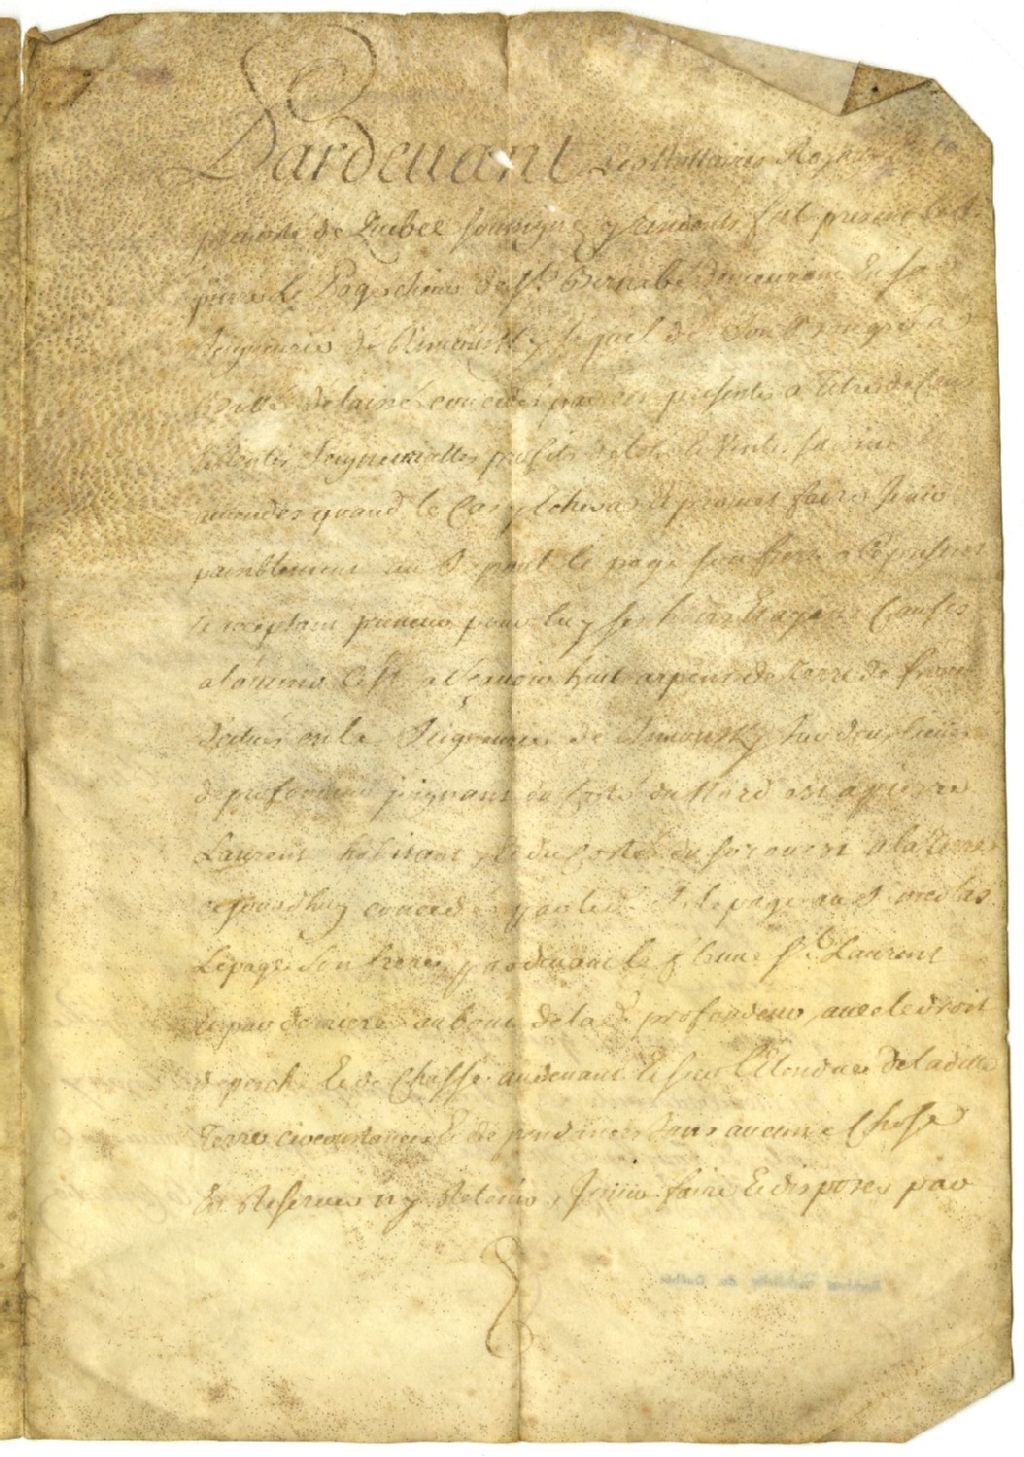 Pardeuant Les Nottaires Royaux
preuosté de Quebec soussignez y residents fut present Le sr
pierre Le Page sieur de St Bernabé demeurant En sa
seigneurie de Rimousky lequel de son bon gré a
Baillé delaissé concedé par ces presentes a Titre de Cens
& Rentes seigneurialles profits de lots & Ventes saisine &
amendes quand le Cas y Echera & promet faire Jouir
paisiblement au Sr le page son frere a ce present
& acceptant preneur pour luy ses hoirs & ayans Causes
a l'auenir C'est a sçauoir huit arpens de Terre de front
scitués en la Seigneurie de Rimousky sur deux lieües
de profondeur joignant du Costé du Nord est a pierre
Laurent habitant & du Costé du sorouest a la Terre
cejourdhuy concedée par led. Sr lepage au Sr nicolas
Lepage son frere, par deuant le fleuve St Laurent
& par derriere au bout de lad. profondeur, auec le droit
de pesche & de Chasse au deuant & sur L'Etendue de ladite
Terre circonstances & dependances sans aucune Chose
En Reseruer ny Retenir, Jouir faire & disposer par